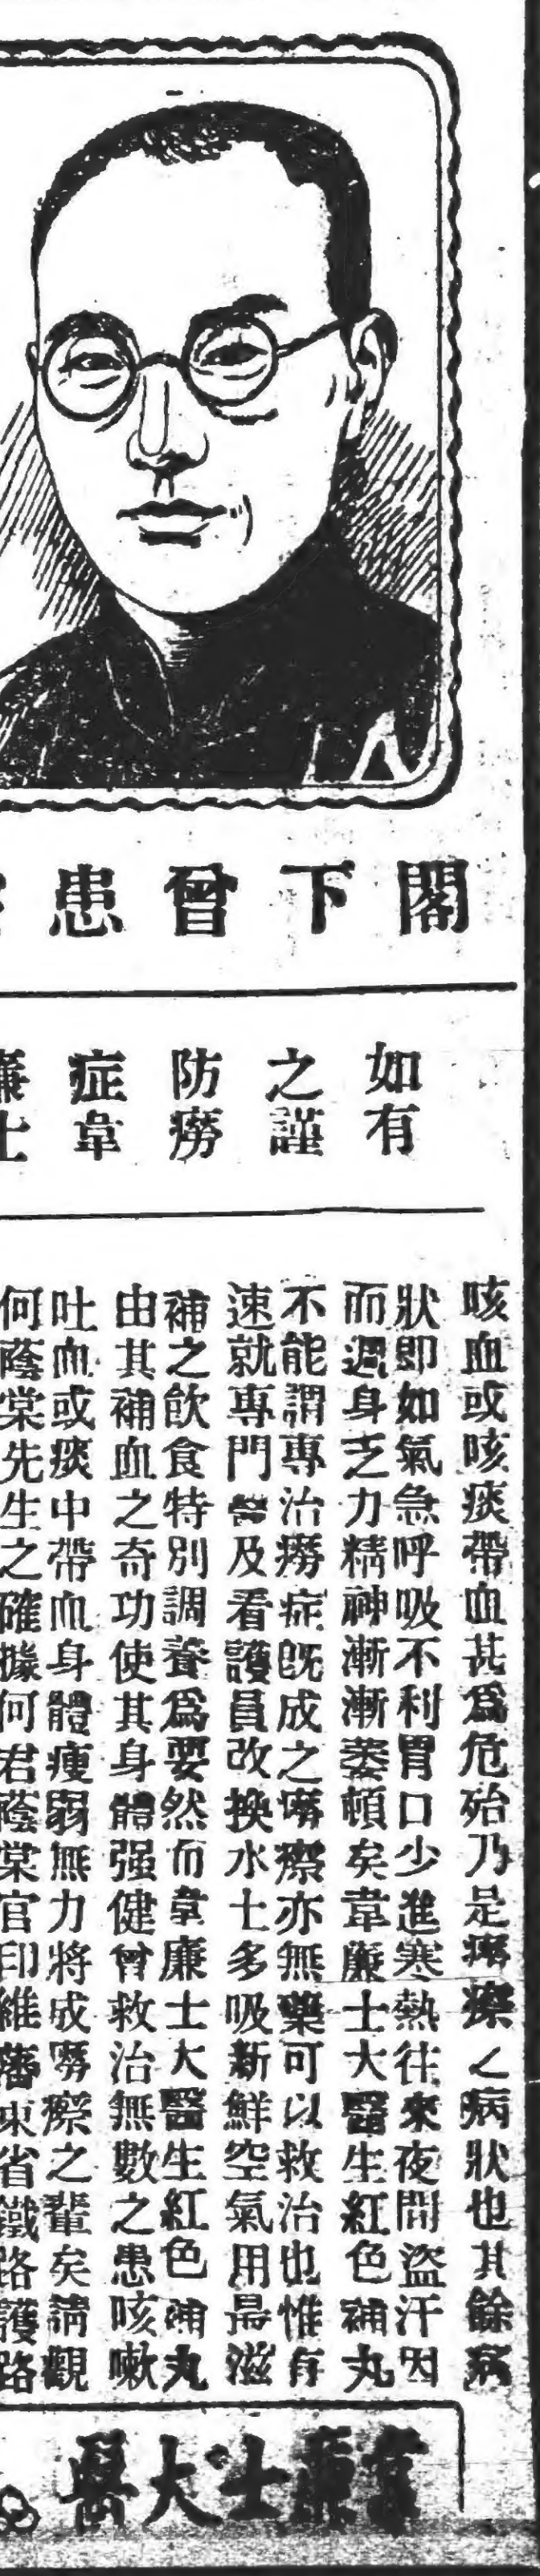 閣下曾患
如有
之謹
防癆
症韋
廉士
咳血或咳痰帶血甚爲危殆乃是癆瘵之病狀也其餘病
狀即如氣急呼吸不利胃口少進寒熱往來夜間盜汗因
而週身乏力精神漸漸萎頓矣韋廉士大醫生紅色補丸
不能謂專治癆症既成之癆瘵亦無藥可以救治也惟有
速就專門醫及看護員改換水土多吸新鮮空氣用最滋
補之飲食特別調養爲要然而韋廉士大醫生紅色補丸
由其補血之奇功使其身體强健曾救治無數之患咳嗽
吐血或痰中帶血身體瘦弱無力將成癆瘵之輩矣請觀
何蔭棠先生之確據何君蔭棠官印維藩東省鐵路護路
韋廉士大醫